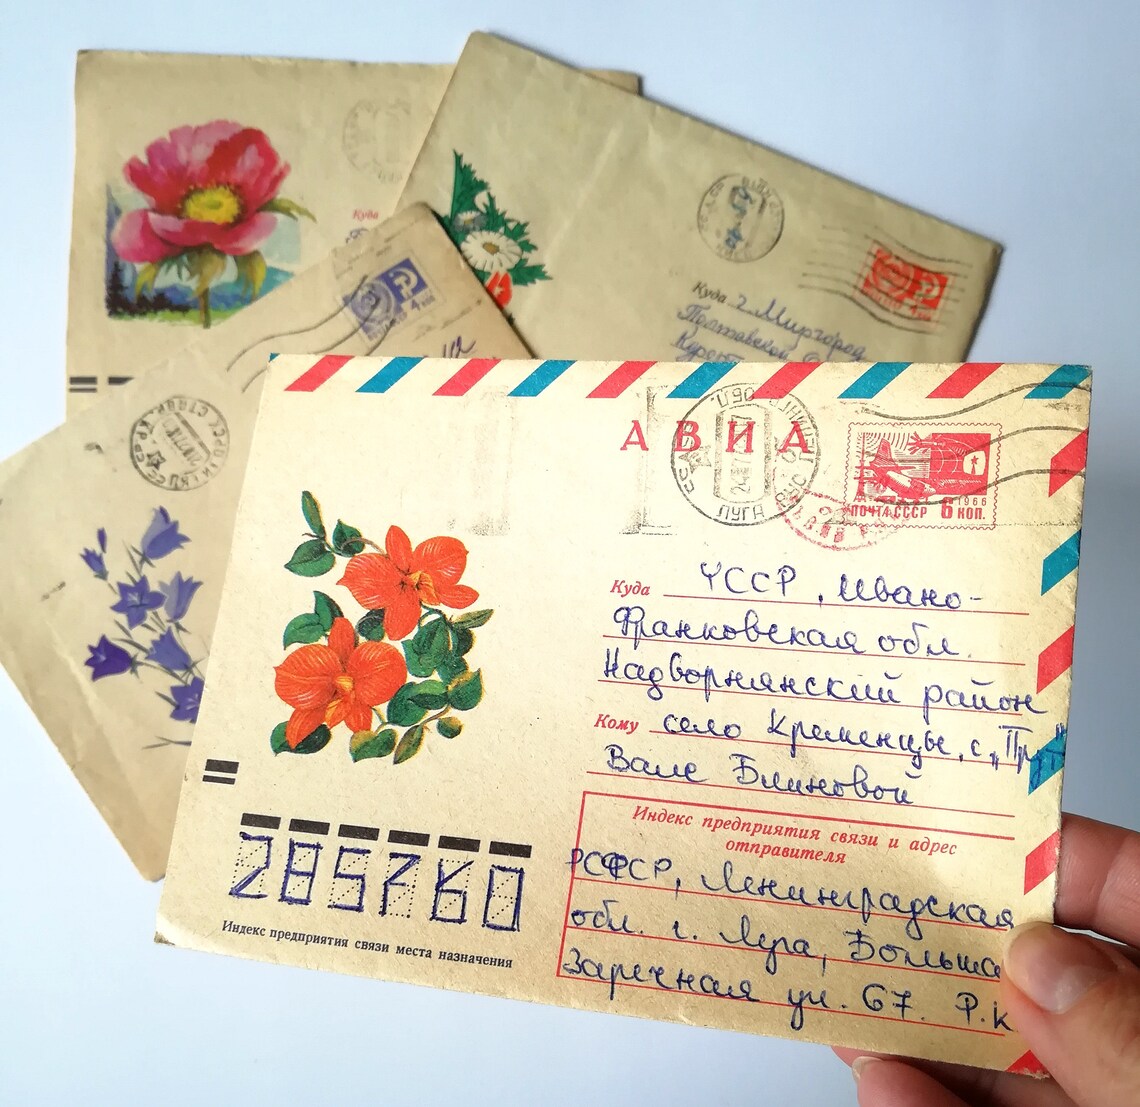 Куда
Куда г. Миргород
Полтавской
Курорт
4 коп
АВИА
ЛУГА
1966
ПОЧТА СССР 6 коп.
Куда УССР, Ивано-
Франковская обл.
Надворнянский район
Кому село Кременцы, с „Прут"
Вале Блиновой
285760
Индекс предприятия связи места назначения
Индекс предприятия связи и адрес
отправителя
РСФСР, Ленинградская
обл. г. Луга, Больша
Заречная ул. 67. Р.К